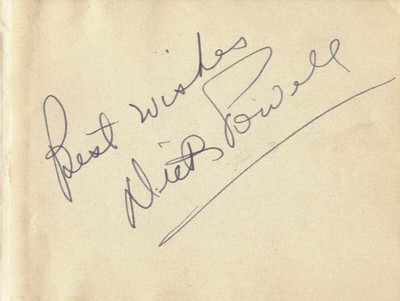 Best wishes
Dick Powell